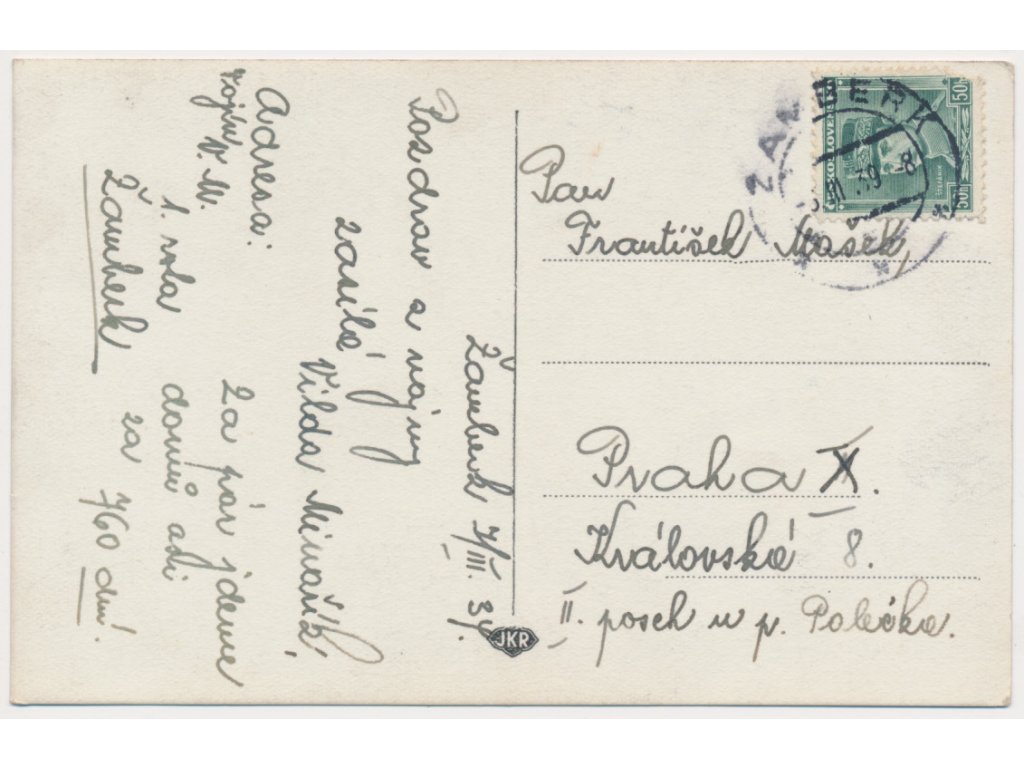 Žamberk 7/III. 39.
Pozdrav a vájmy
zasílá
Vilda Minařík
Adresa:
vojín V. M.
1. rota
Žamberk
Za pár jdeme
domů asi
za 760 dní.
Pan
František Mašek,
Praha X.
Královská 8.
II. posch u p. Polečka.
ŽAMBERK
III. 39 -8
ČESKOSLOVENSKO
50h
50h
JKR